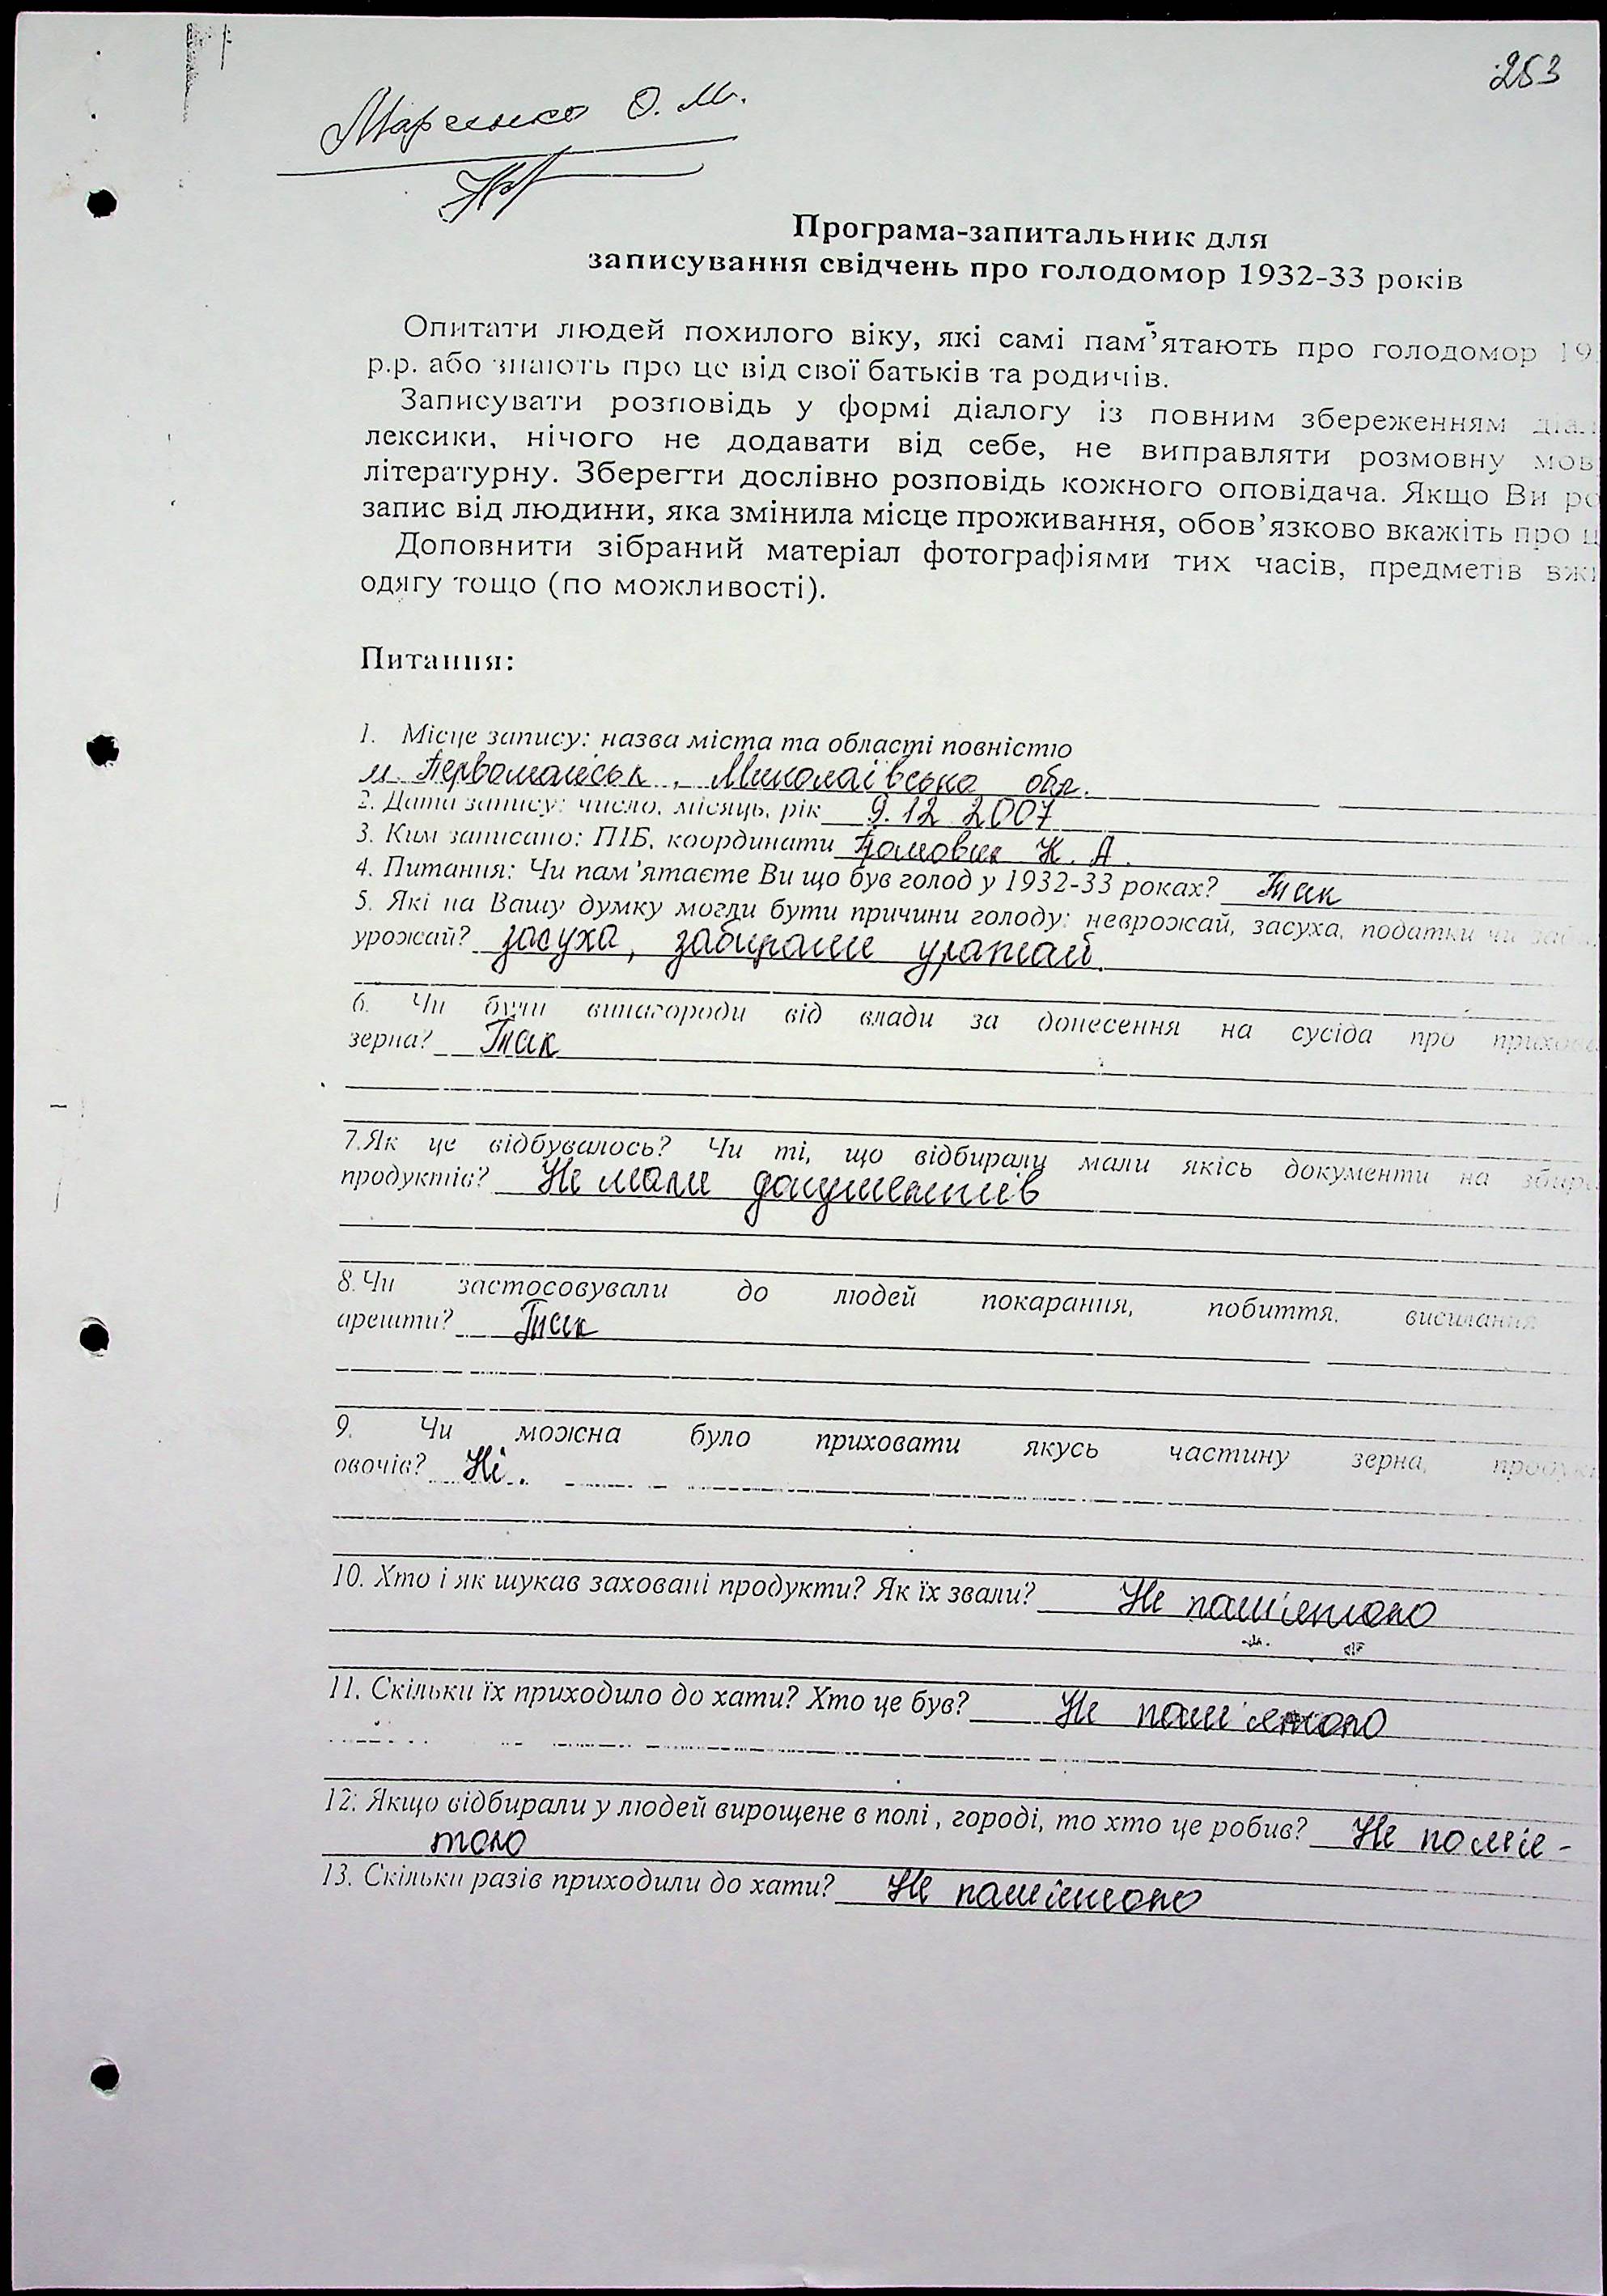 253
Марченко О. М.
Програма-запитальник для
записування свідчень про голодомор 1932-33 років
Опитати людей похилого віку, які самі пам’ятають про голодомор 19
р.р. або знають про це від свої батьків та родичів.
Записувати розповідь у формі діалогу із повним збереженням діал
лексики, нічого не додавати від себе, не виправляти розмовну мов
літературну. Зберегти дослівно розповідь кожного оповідача. Якщо Ви ро
запис від людини, яка змінила місце проживання, обов’язково вкажіть про ц
Доповнити зібраний матеріал фотографіями тих часів, предметів вжи
одягу тощо (по можливості).
Питання:
1. Місце запису: назва міста та області повністю
м. Первомайськ, Миколаївська обл.
2. Дата запису: число, місяць, рік 9.12 2007
3. Ким записано: ПІБ, координати Н. А.
4. Питання: Чи пам’ятаєте Ви що був голод у 1932-33 роках? Так
5. Які на Вашу думку могли бути причини голоду: неврожай, засуха, податки чи заб
урожай? засуха, забирали уражай.
6. Чи були винагороди від влади за донесення на сусіда про прихов
зерна? Так
7.Як це відбувалось? Чи ті, що відбирали мали якісь документи на збир
продуктів? Не мали документів
8.Чи застосовували до людей покарання, побиття, висилання
арешти? Так
9. Чи можна було приховати якусь частину зерна, продук
овочів? Ні.
10. Хто і як шукав заховані продукти? Як їх звали? Не пам'ятаю
11. Скільки їх приходило до хати? Хто це був? Не пам'ятаю
12. Якщо відбирали у людей вирощене в полі, городі, то хто це робив? Не пам'я-
таю
13. Скільки разів приходили до хати? Не пам'ятаю